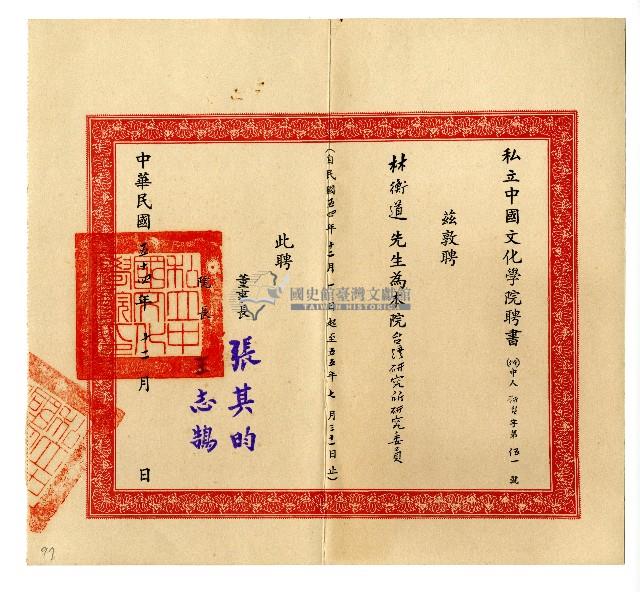 私立中國文化學院聘書 (54)中人 字第伍一號
茲敦聘
林衡道先生為本院台湾研究所研究委員
(自民國五四年十二月一日起至五五年七月三十一日止)
此聘
董事長 張其昀
院長 王志鵠
中華民國五十四年十二月 日
私立中國文化學院印
國史館臺灣文獻館
TAIWAN HISTORICA